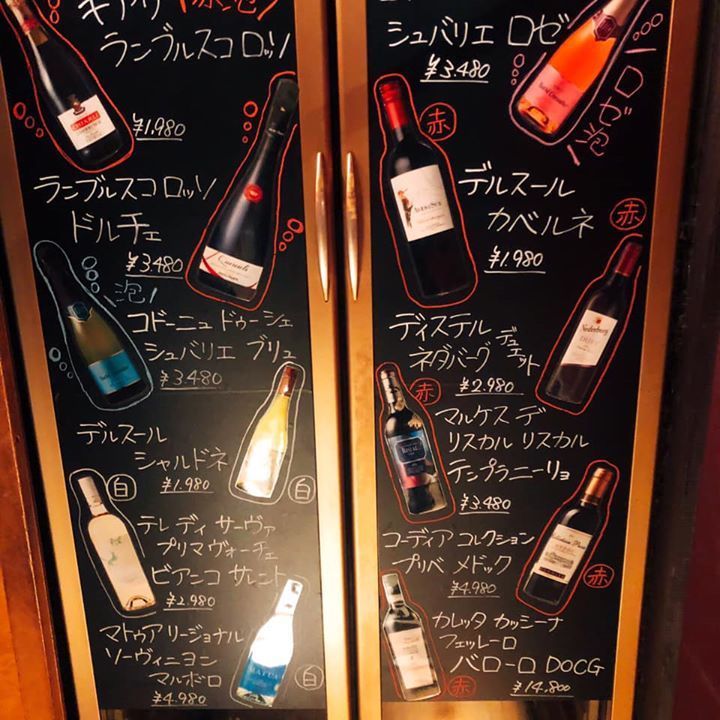 キアリ (赤泡)
ランブルスコ ロッソ
¥1,980
ランブルスコ ロッソ
ドルチェ
¥3.480
泡
コドーニュ ドゥーシェ
シュバリエ ブリュ
¥3.480
デルスール
シャルドネ
¥1.980
白
白
テレ ディ サーヴァ
プリマヴォーチェ
ビアンコ サレント
¥2.980
マトゥア リージョナル
ソーヴィニヨン
マルボロ
¥4.980
白
シュバリエ ロゼ
¥3.480
ロゼ泡
赤
デルスール
カベルネ
¥1.980
赤
ディステル
ネダバーグ デュエット
¥2.980
赤
マルケス デ
リスカル リスカル
テンプラニーリョ
¥3.480
コーディア コレクション
プリベ メドック
¥4.980
赤
カレッタ カッシーナ
フェッレーロ
バローロ DOCG
¥14.800
赤
MATUA